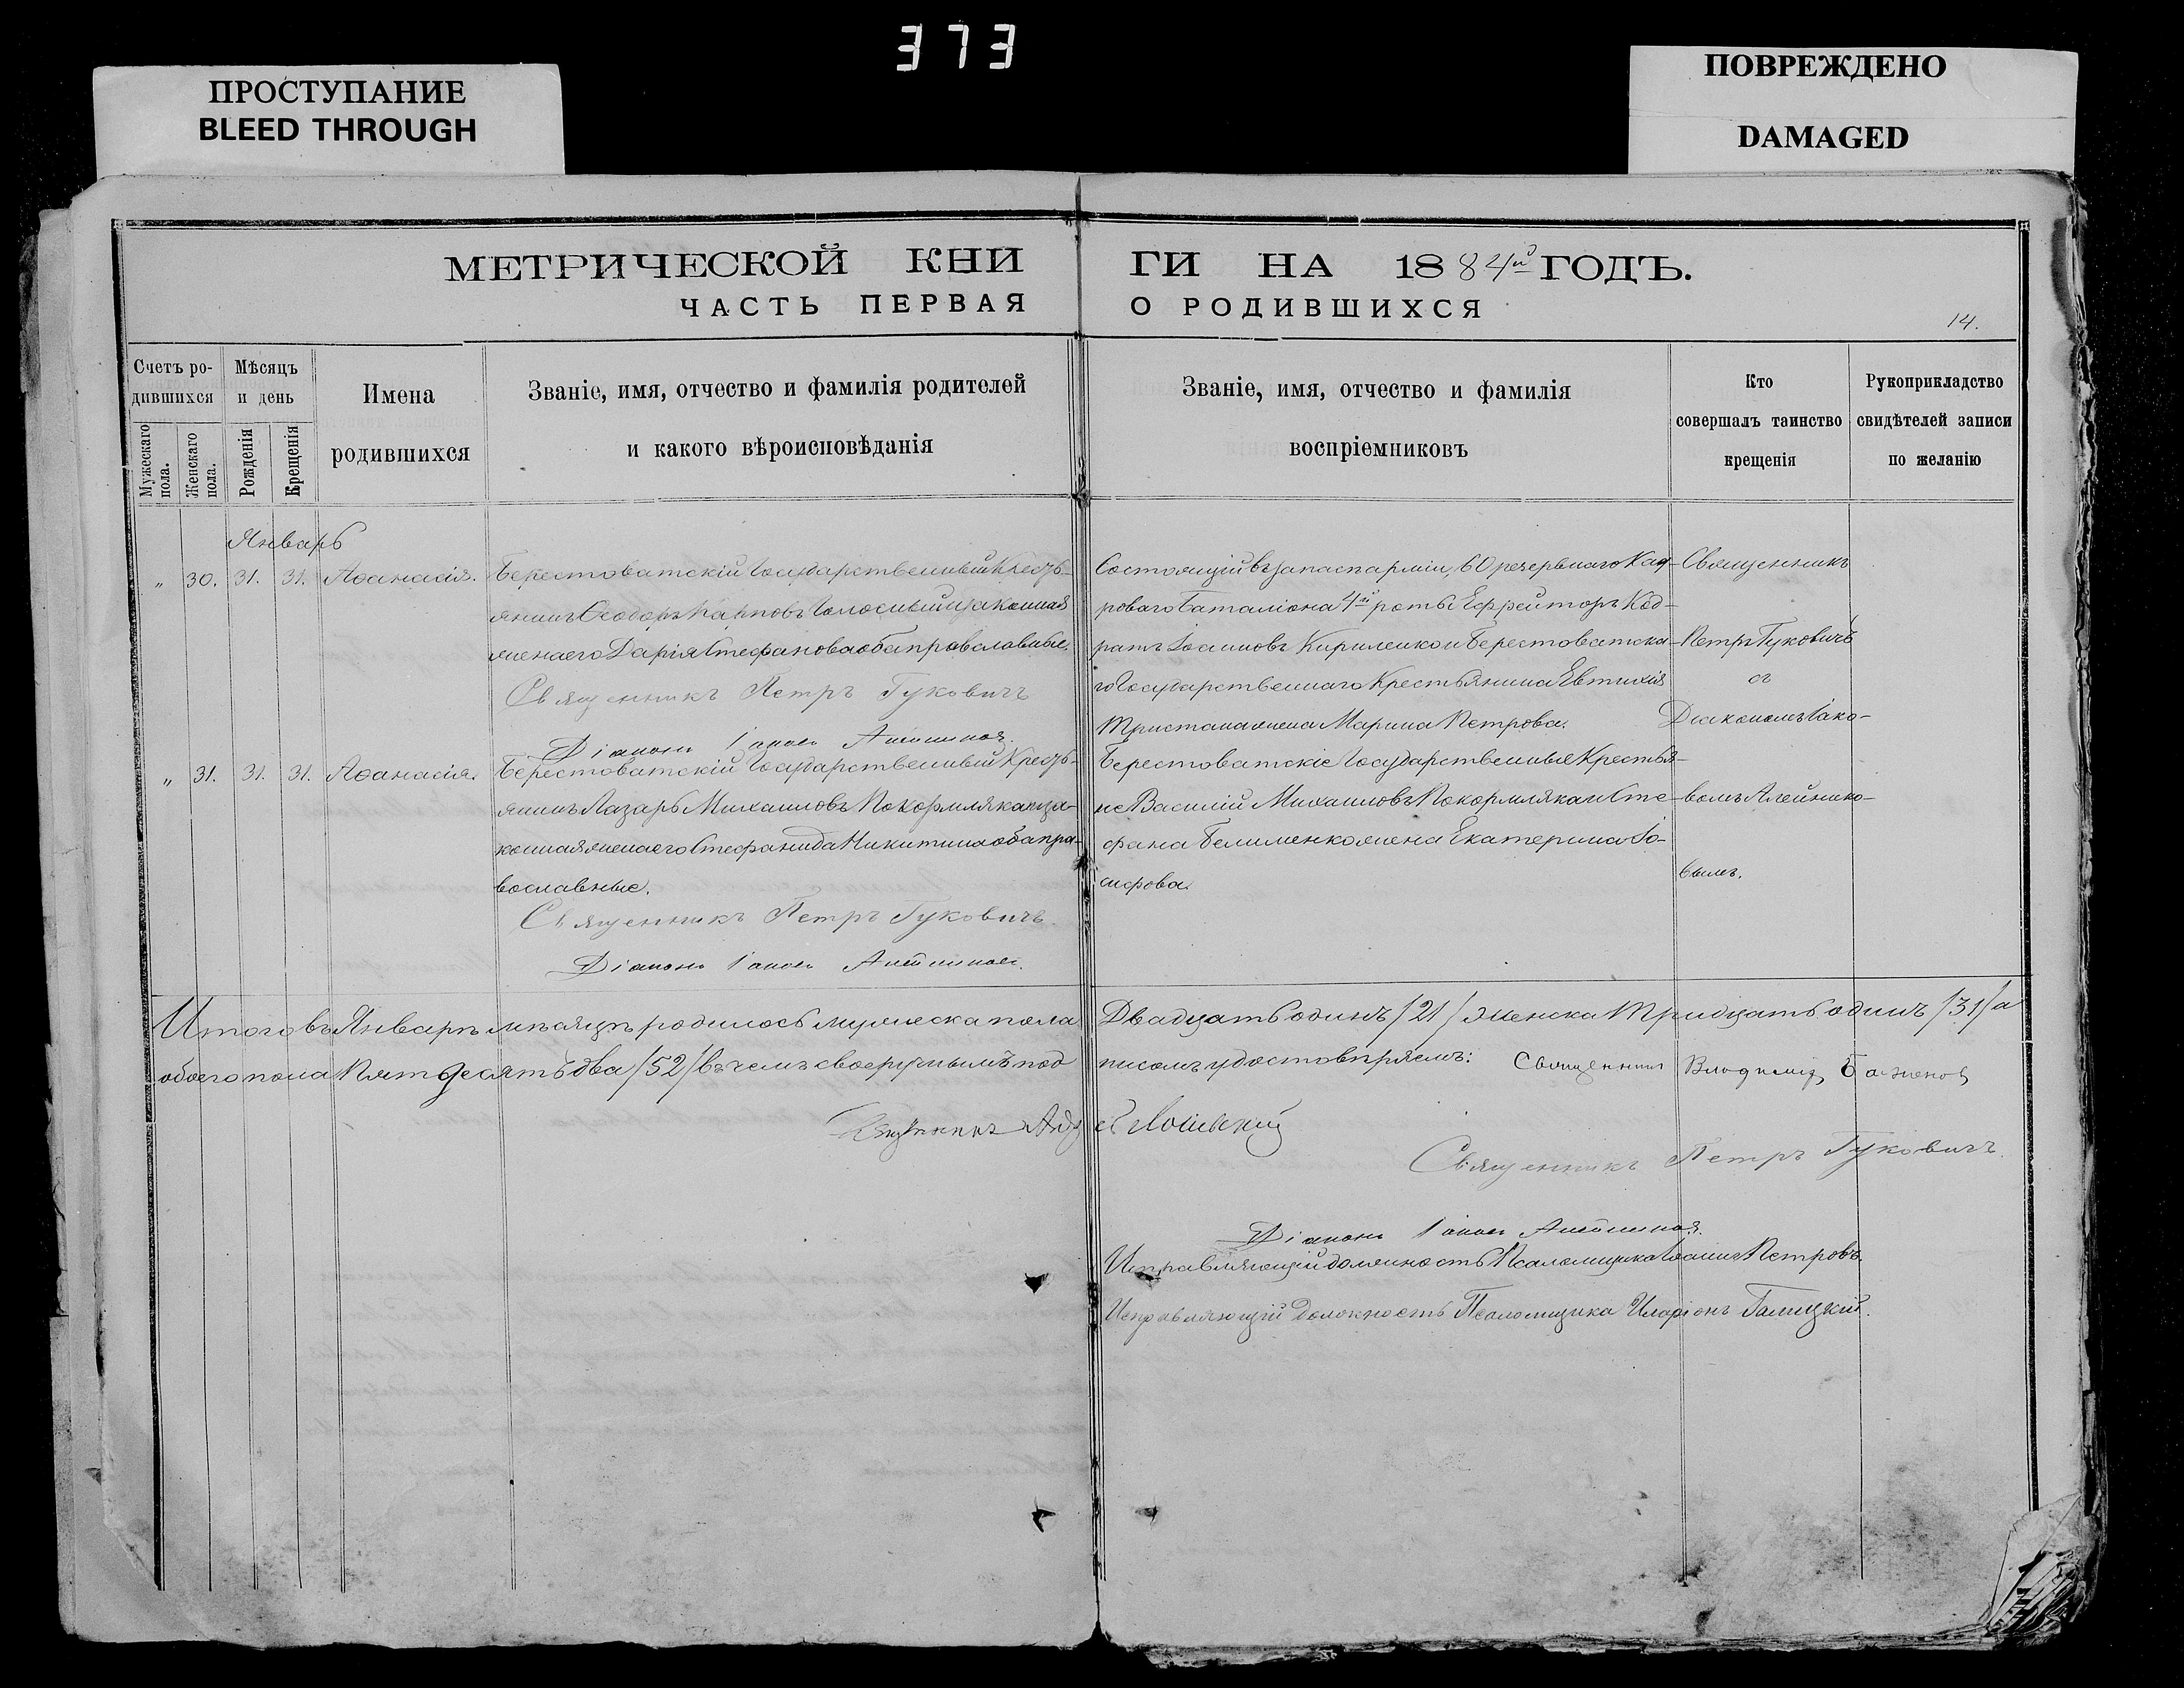 373
ПРОСТУПАНИЕ
BLEED THROUGH
ПОВРЕЖДЕНО
DAMAGED
МЕТРИЧЕСКОЙ КНИГИ НА 1884й ГОДЪ.
ЧАСТЬ ПЕРВАЯ О РОДИВШИХСЯ
14.
Счетъ ро-
дившихся
Мужескаго пола.
Женскаго пола.
Мѣсяцъ
и день
Рожденія
Крещенія
Имена
родившихся
Званіе, имя, отчество и фамилія родителей
и какого вѣроисповѣданія
Званіе, имя, отчество и фамилія
воспріемниковъ
Кто
совершалъ таинство
крещенія
Рукоприкладство
свидѣтелей записи
по желанію
Январь
„ 30. 31. 31. Аѳанасія.
Берестоватскій Государственный Кресть-
янинъ Ѳеодоръ Карповъ и законная
жена его Дарія Стефанова оба православные.
Священникъ Петръ Гуковичъ
Діаконъ Іаковъ
Состоящій въ запасѣ арміи, 60 резервнаго Кад-
роваго баталіона 4й роты Ефрейторъ Код-
ратъ Іоанновъ Кириленко и Берестоватска-
го Государственнаго Крестьянина Евтихія
Тристана жена Марина Петрова.
Священникъ
Петръ Гуковичъ
съ
Діакономъ Іако-
вомъ Алейнико-
вымъ.
„ 31. 31. 31. Аѳанасія.
Берестоватскій Государственный Кресть-
янинъ Лазарь Михаиловъ Покормляка и за-
конная жена его Стефанида Никитина оба пра-
вославные.
Священникъ Петръ Гуковичъ.
Діаконъ Іаковъ
Берестоватскіе Государственные Крестья-
не Василій Михаиловъ Покормляка и Сте-
фана жена Екатерина Іо-
сифова.
Итого въ Январѣ мѣсяцѣ родилось мужеска пола Двадцать одинъ /21/ женска Тридцать одинъ /31/ а
обоего пола Пятьдесятъ два /52/ въ чемъ своеручнымъ подписомъ удостовѣряемъ: Священникъ Владиміръ Баженов
Священникъ
Священникъ Петръ Гуковичъ.
Діаконъ Іаковъ
Исправляющій должность Псаломщика Іоаннъ Петровъ.
Исправляющій должность Псаломщика Иларіонъ Галицкій.